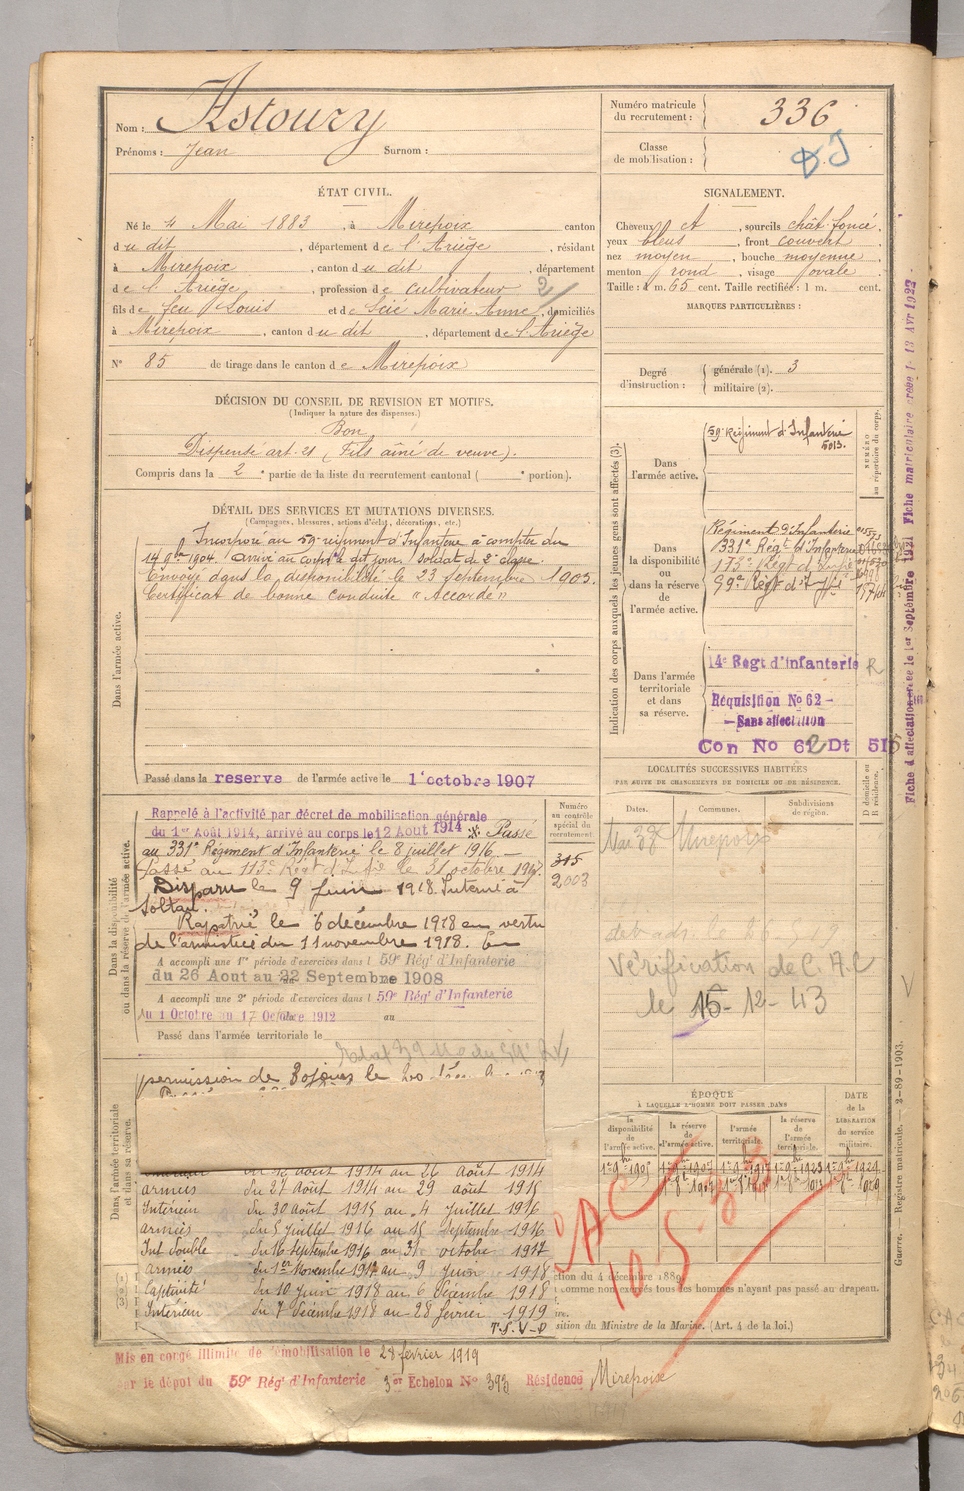 Nom : Astoury
Prénoms : Jean Surnom :
Numéro matricule
du recrutement : 336
Classe
de mobilisation :
ÉTAT CIVIL.
Né le 4 Mai 1883, à Mirepoix canton
du dit, département de l'Ariège, résidant
à Mirepoix, canton du dit, département
de l'Ariège, profession de cultivateur 2
fils de feu Louis et de Marie Anne, domiciliés
à Mirepoix, canton du dit, département de l'Ariège
N° 85 de tirage dans le canton de Mirepoix
SIGNALEMENT.
Cheveux et, sourcils chât. foncé,
yeux bleus, front couvert,
nez moyen, bouche moyenne,
menton rond, visage ovale.
Taille : 1 m. 65 cent. Taille rectifiée : 1 m. cent.
MARQUES PARTICULIÈRES :
Degré
d'instruction :
générale (1). 3
militaire (2).
DÉCISION DU CONSEIL DE REVISION ET MOTIFS.
(Indiquer la nature des dispenses.)
Bon
Dispensé art. 21 (Fils aîné de veuve).
Compris dans la 2e partie de la liste du recrutement cantonal ( e portion).
DÉTAIL DES SERVICES ET MUTATIONS DIVERSES.
(Campagnes, blessures, actions d'éclat, décorations, etc.)
Dans l'armée active.
Incorporé au 59e régiment d'Infanterie à compter du
14 9bre 1904. Arrivé au corps le dit jour, soldat de 2e classe.
Envoyé dans la disponibilité le 23 septembre 1905.
Certificat de bonne conduite "Accordé"
Passé dans la reserve de l'armée active le 1 octobre 1907
Indication des corps auxquels les jeunes gens sont affectés (3).
NUMÉRO
au répertoire du corps.
Dans
l'armée active.
59e Régiment d'Infanterie
5013.
Dans
la disponibilité
ou
dans la réserve
de
l'armée active.
Régiment d'Infanterie
331e Régt d'Infanterie
113e Régt d'Infie
59e Régt d'Infie
Dans l'armée
territoriale
et dans
sa réserve.
14e Regt d'infanterie R
Réquisition No 62 -
- Sans affectation
Con No 62 Dt 515
Fiche d'affectation créée le 1er Septembre 1921 Fiche matriculaire créée l- 13 Avr 1922
LOCALITÉS SUCCESSIVES HABITÉES
PAR SUITE DE CHANGEMENTS DE DOMICILE OU DE RÉSIDENCE.
D domicile ou
R résidence.
Dates. Communes. Subdivisions
de région.
Mirepoix
Vérification de C.A.C
le 15-12-43
Dans la disponibilité
ou dans la réserve de l'armée active.
Numéro
au contrôle
spécial du
recrutement.
315
2003
Rappelé à l'activité par décret de mobilisation générale
du 1er Août 1914, arrivé au corps le 12 Aout 1914 Passé
au 331e Régiment d'Infanterie le 8 juillet 1916.
Passé au 113e Régt d'Infie le 31 octobre 1917.
Disparu le 9 Juin 1918. Interné à
Soltau.
Rapatrié le 6 décembre 1918 en vertu
de l'armistice du 11 novembre 1918. En
A accompli une 1re période d'exercices dans l 59e Rég' d'Infanterie
du 26 Aout au 22 Septembre 1908
A accompli une 2e période d'exercices dans l 59e Rég' d'Infanterie
du 1 Octobre au 17 Octobre 1912 au
Passé dans l'armée territoriale le
Dans l'armée territoriale
et dans sa réserve.
permission de 30 jours le
du 12 août 1914 au 26 Août 1914
armées du 27 Août 1914 au 29 août 1915
Intérieur du 30 août 1915 au 4 Juillet 1916
armées du 5 Juillet 1916 au 15 septembre 1916
Int double du 16 septembre 1916 au 31 octobre 1917
armées du 1er Novembre 1917 au 9 Juin 1918
Captivité du 10 Juin 1918 au 6 Décembre 1918
Intérieur du 7 Décembre 1918 au 28 février 1919
T.S.V.P
ÉPOQUE
À LAQUELLE L'HOMME DOIT PASSER DANS
la
disponibilité
de
l'armée active.
la réserve
de
l'armée active.
l'armée
territoriale.
la réserve
de
l'armée
territoriale.
DATE
de la
LIBÉRATION
du service
militaire.
CAC
10.5.33
ction du 4 décembre 1889
comme non exercés tous les hommes n'ayant pas passé au drapeau.
sition du Ministre de la Marine. (Art. 4 de la loi.)
Guerre. Registre matricule. — 2-89-1903.
Mis en congé illimité de démobilisation le 28 février 1919
par le dépôt du 59e Rég' d'Infanterie 3er Echelon No 393 Résidence Mirepoix